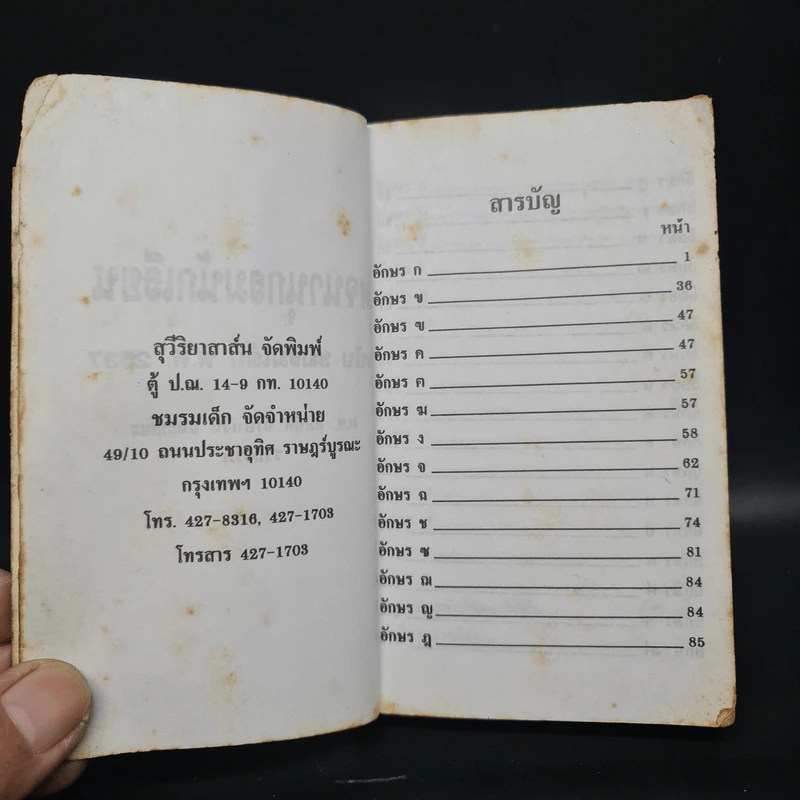 สุวีริยาสาส์น จัดพิมพ์
ตู้ ป.ณ. 14-9 กท. 10140
ชมรมเด็ก จัดจำหน่าย
49/10 ถนนประชาอุทิศ ราษฎร์บูรณะ
กรุงเทพฯ 10140
โทร. 427-8316, 427-1703
โทรสาร 427-1703
สารบัญ
หน้า
อักษร ก 1
อักษร ข 36
อักษร ฃ 47
อักษร ค 47
อักษร ฅ 57
อักษร ฆ 57
อักษร ง 58
อักษร จ 62
อักษร ฉ 71
อักษร ช 74
อักษร ซ 81
อักษร ฌ 84
อักษร ญ 84
อักษร ฎ 85